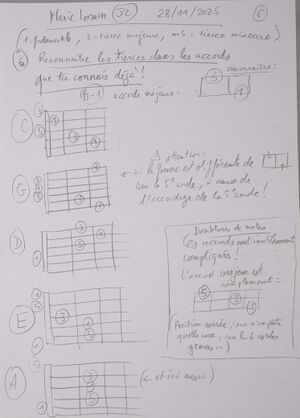 Marie Lorain (52) 28/11/2025 (6)
(1 = fondamentale, 3 = tierce majeure, m3 = tierce mineure)
(6) Reconnaître les tierces dans les accords
que tu connais déjà!
6-1) accords majeurs: reconnaître:
3
1
C
G
D
E
A
⚠ attention:
si la forme est différente
sur la 5e corde, à cause de
l'accordage de la 5e corde!
Doublures de notes
Les accords sont inutilement
compliqués!
L'accord majeur est
simplement:
5 3 1
(Position serrée, sur n'importe
quelle case, sur les 6 cordes
graves...)
(← et ici aussi)